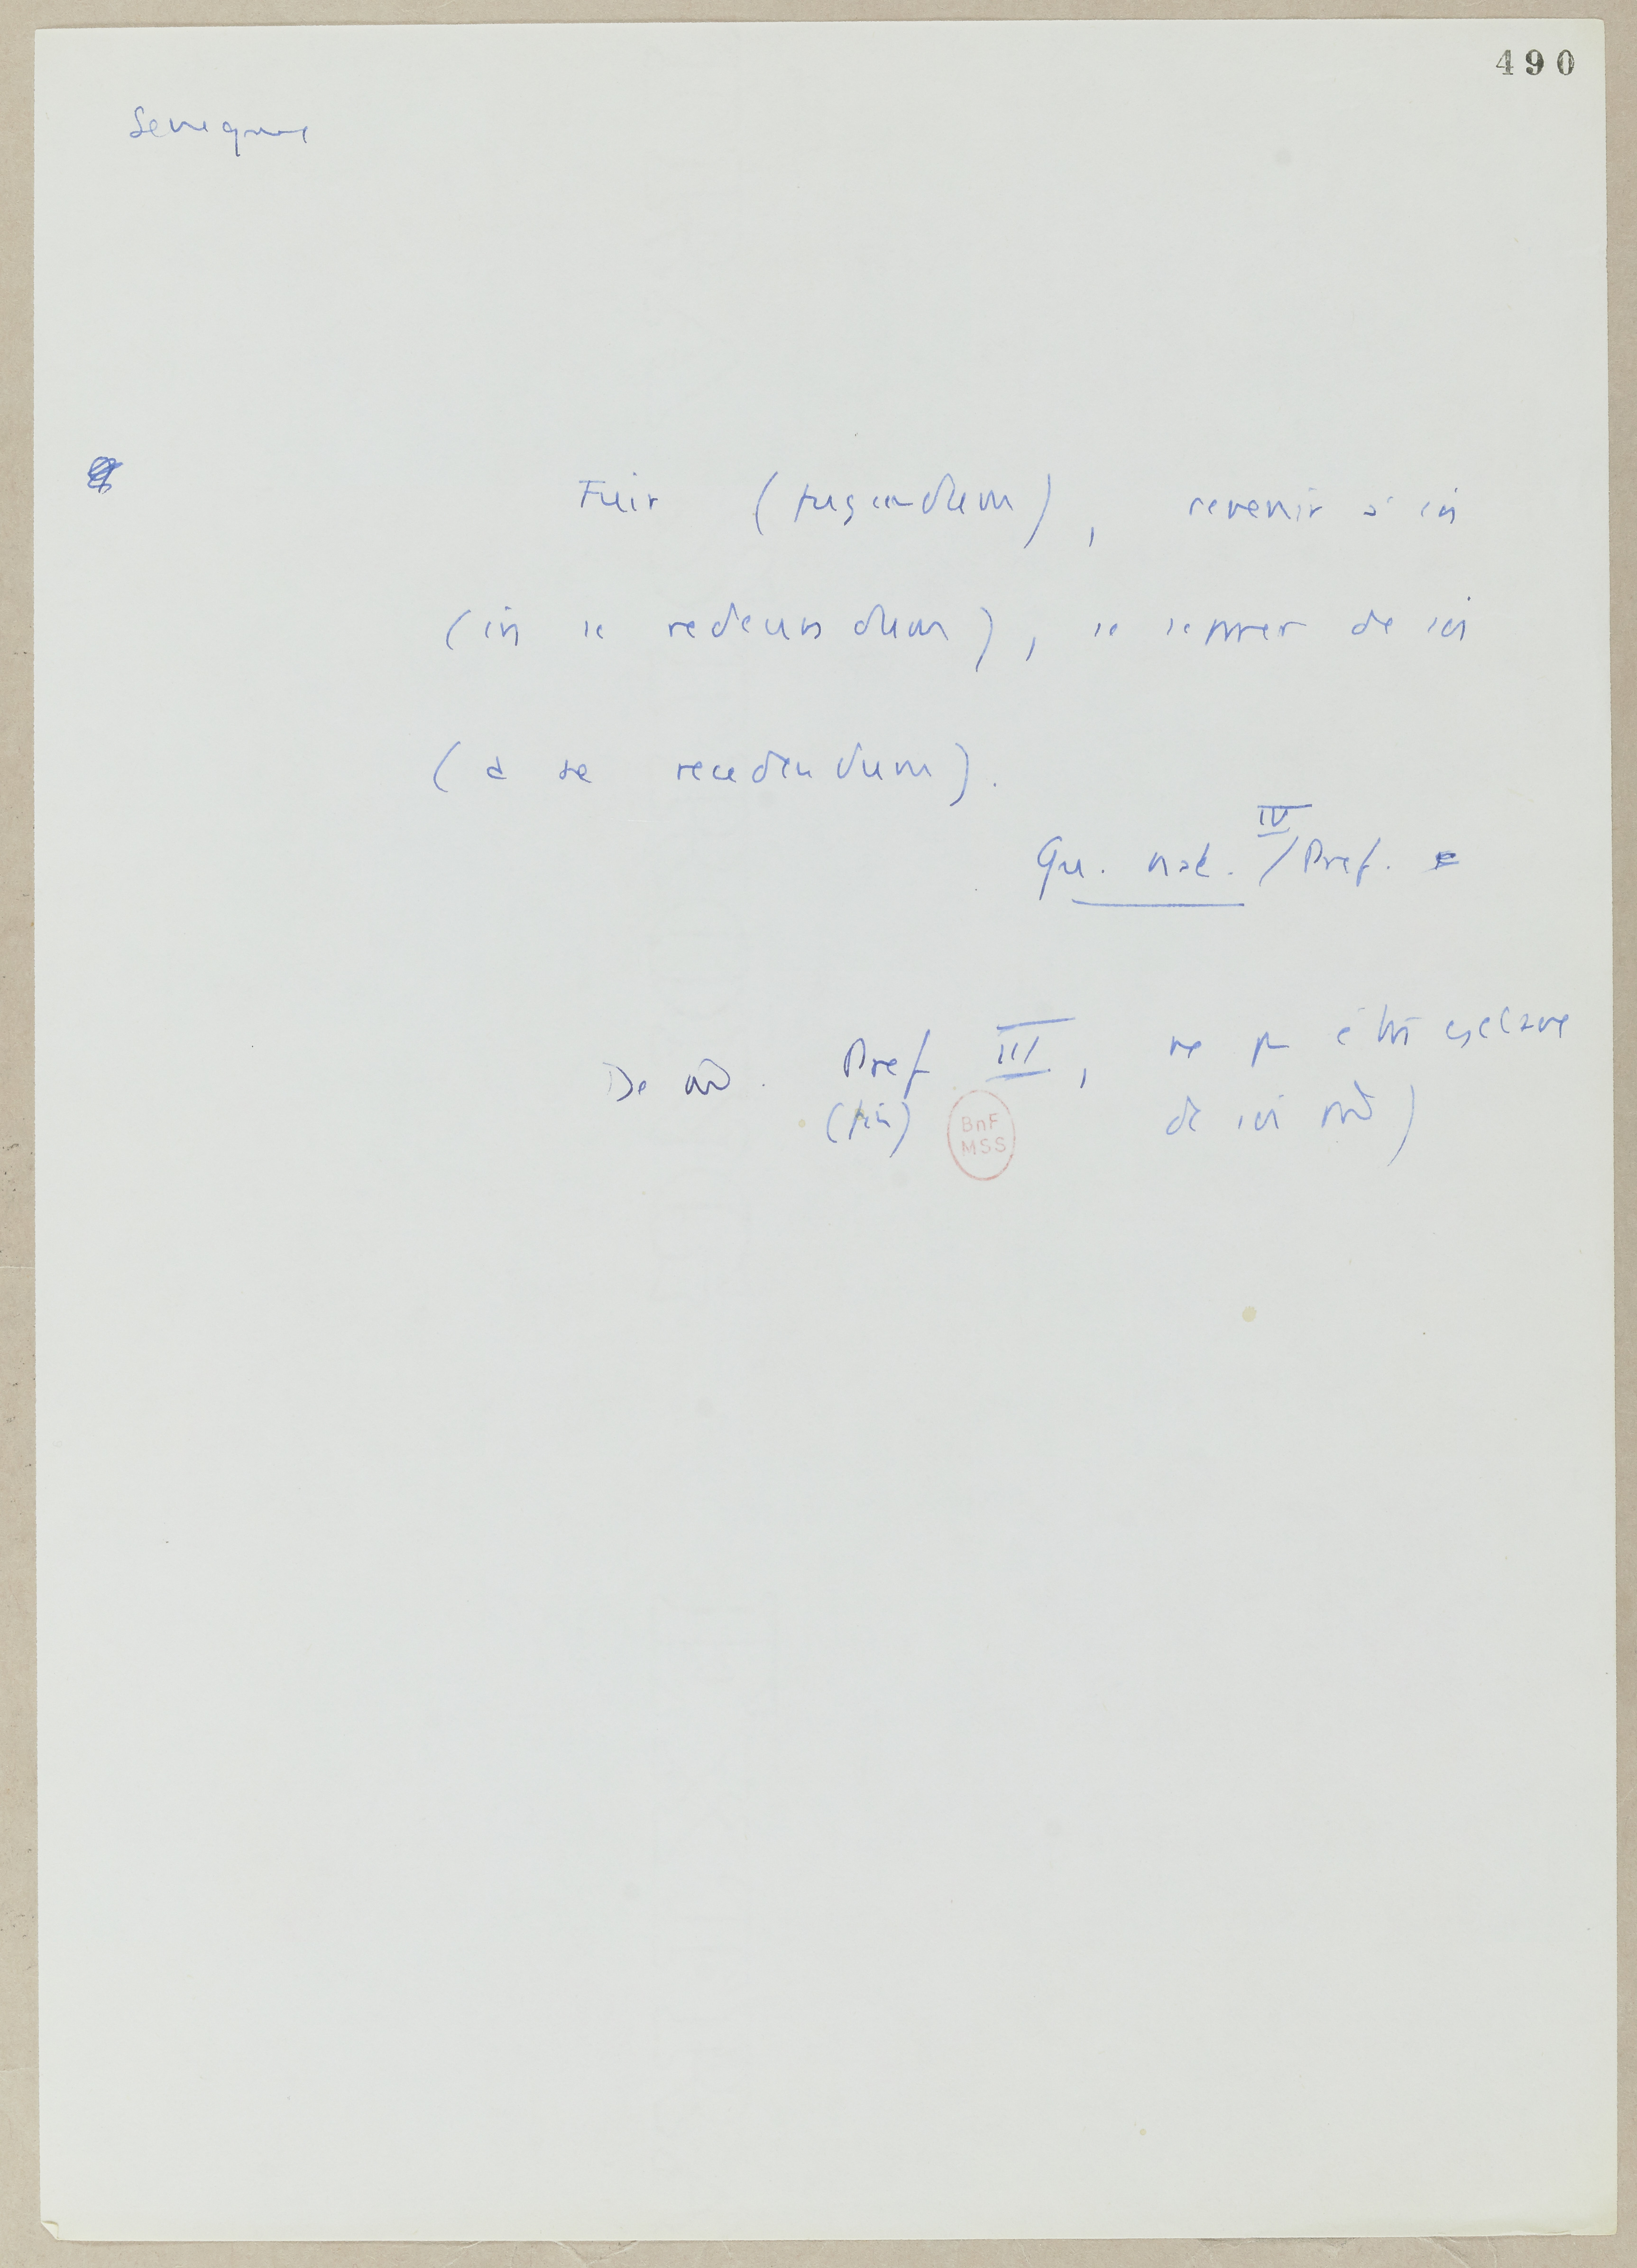 490
Seneque
Fuir (fugiendum), revenir à soi
(in se redeundum), se séparer de soi
(a se recedendum).
IV
Qu. nat. / Pref.
De m̂. Pref III, ne pas être esclave
(fin) de soi m̂)
BnF
MSS